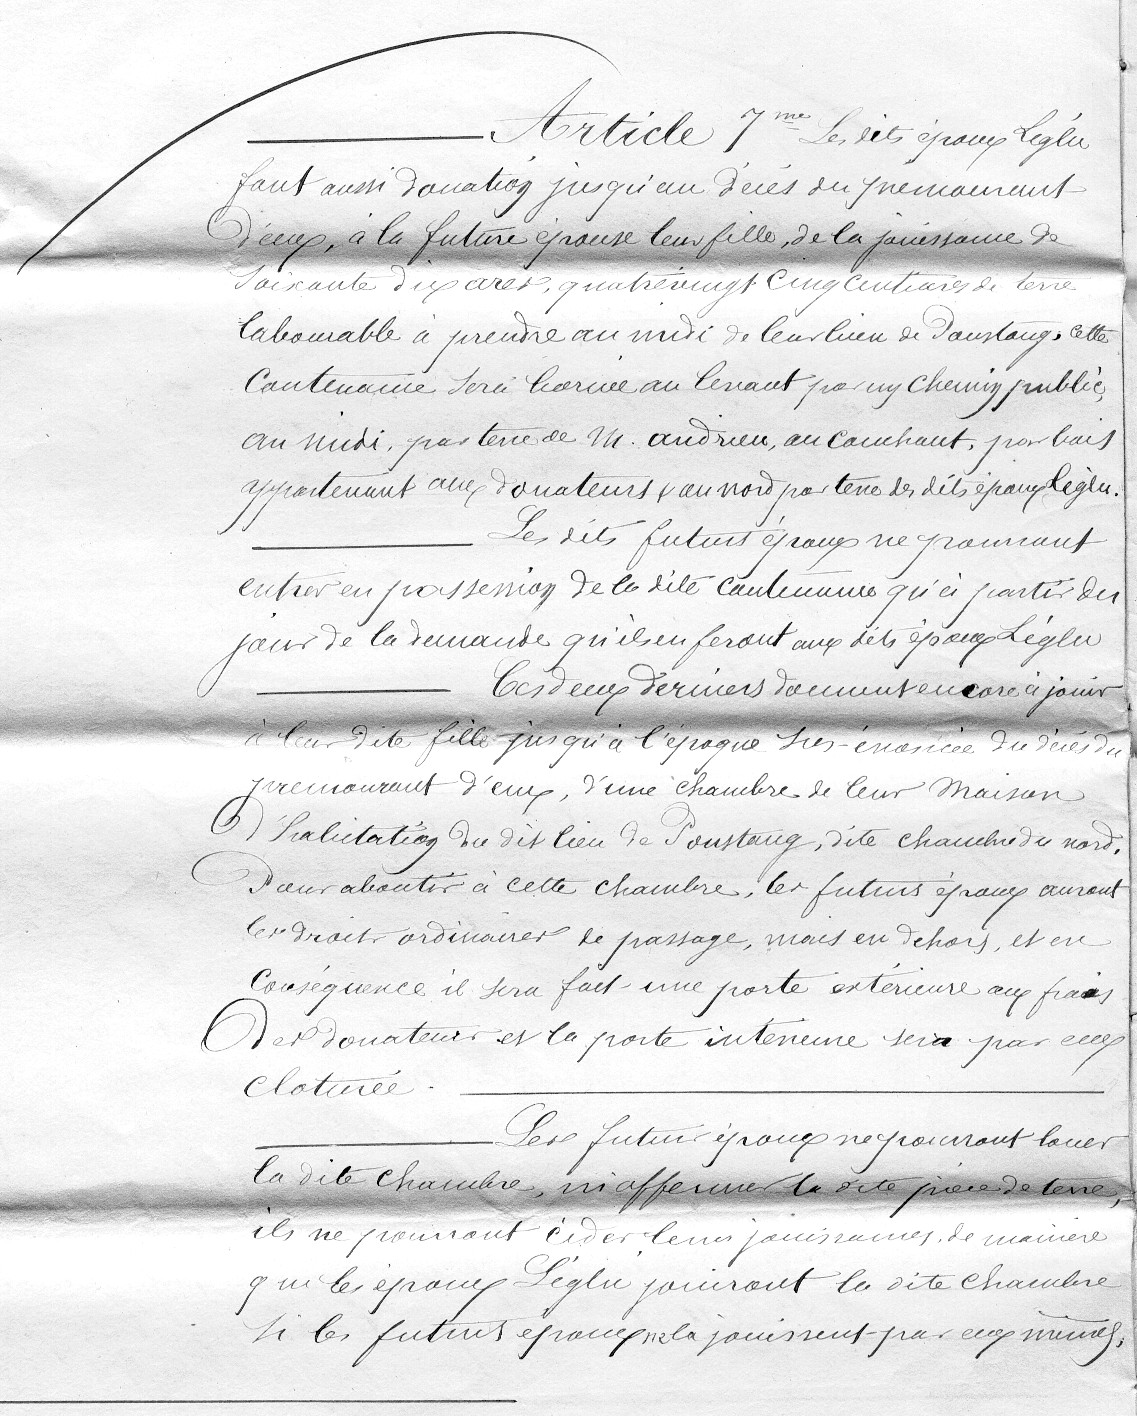 Article 7me Les dits époux Léglu
font aussi donation jusqu'au décès du prémourant
d'eux, à la future épouse leur fille, de la jouissance de
Soixante dix ares, quatrévingt cinq centiares de terre
labourable à prendre au midi de leur lieu de Poustang, cette
Contenance sera bornée au levant par un chemin public,
au midi, par terre de M. Andrieu, au couchant, par bois
appartenant aux donateurs & au nord par terre des dits époux Léglu.
Les dits futurs époux ne pourront
entrer en possession de la dite contenance qu'à partir du
jour de la demande qu'ils en feront aux dits époux Léglu
Ces deux derniers donnent encore à jouir
à leur dite fille jusqu'à l'époque sus-énoncée du décès du
prémourant d'eux, d'une chambre de leur Maison
d'habitation du dit lieu de Poustang, dite chambre du nord.
Pour aboutir à cette chambre, les futurs époux auront
les droits ordinaires de passage, mais en dehors, et en
conséquence il sera fait une porte extérieure aux frais
des donateurs et la porte intérieure sera par eux
cloturée.
Les futurs époux ne pourront louer
la dite chambre, ni affermer la dite pièce de terre,
ils ne pourront céder leurs jouissances, de manière
que les époux Léglu jouiront la dite chambre
si les futurs époux ne la jouissent par eux mêmes,